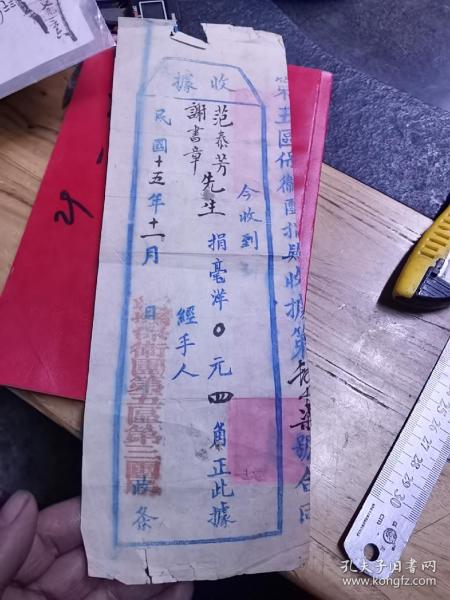 收據
第五區保衛團捐款收據第
號合同
今收到
范泰芳
謝書章
先生
捐毫洋〇元四角正此據
經手人
民國十五年十一月 日 條
保衛團第五區第三
25 26 27 28 29 30
孔夫子旧书网
www.kongfz.com